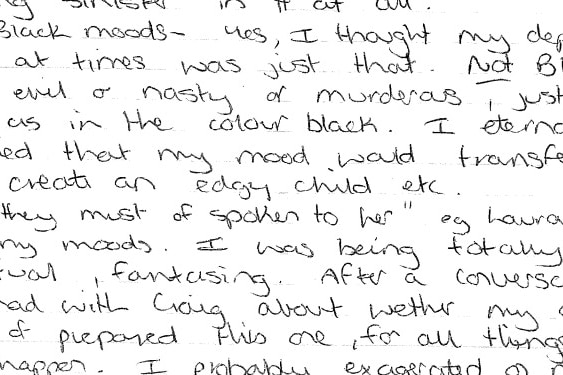 sinister in it at all.
Black moods - yes, I thought my dep
at times was just that. Not Bl
evil or nasty or murderas, just
as in the colour black. I eterna
ed that my mood would transfe
create an edgy child etc.
they must of spoken to her" eg Laura
my moods. I was being totally
ual, fantasing. After a conversa
ad with Craig about wether my
of prepared this one, for all things
happen. I probably exagerated